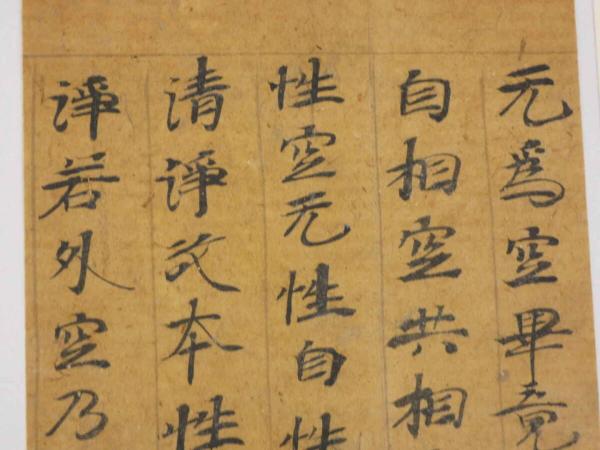 无為空畢竟
自相空共相
性空无性自性
清淨故本性
淨若外空乃